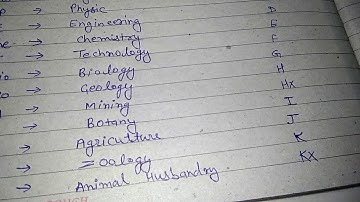 → Physic D
→ Engineering E
→ Chemistry F
→ Technology G
→ Biology H
→ Geology Hx
→ Mining I
→ Botany J
→ Agriculture K
→ Zoalogy
→ Animal Husbandry KX